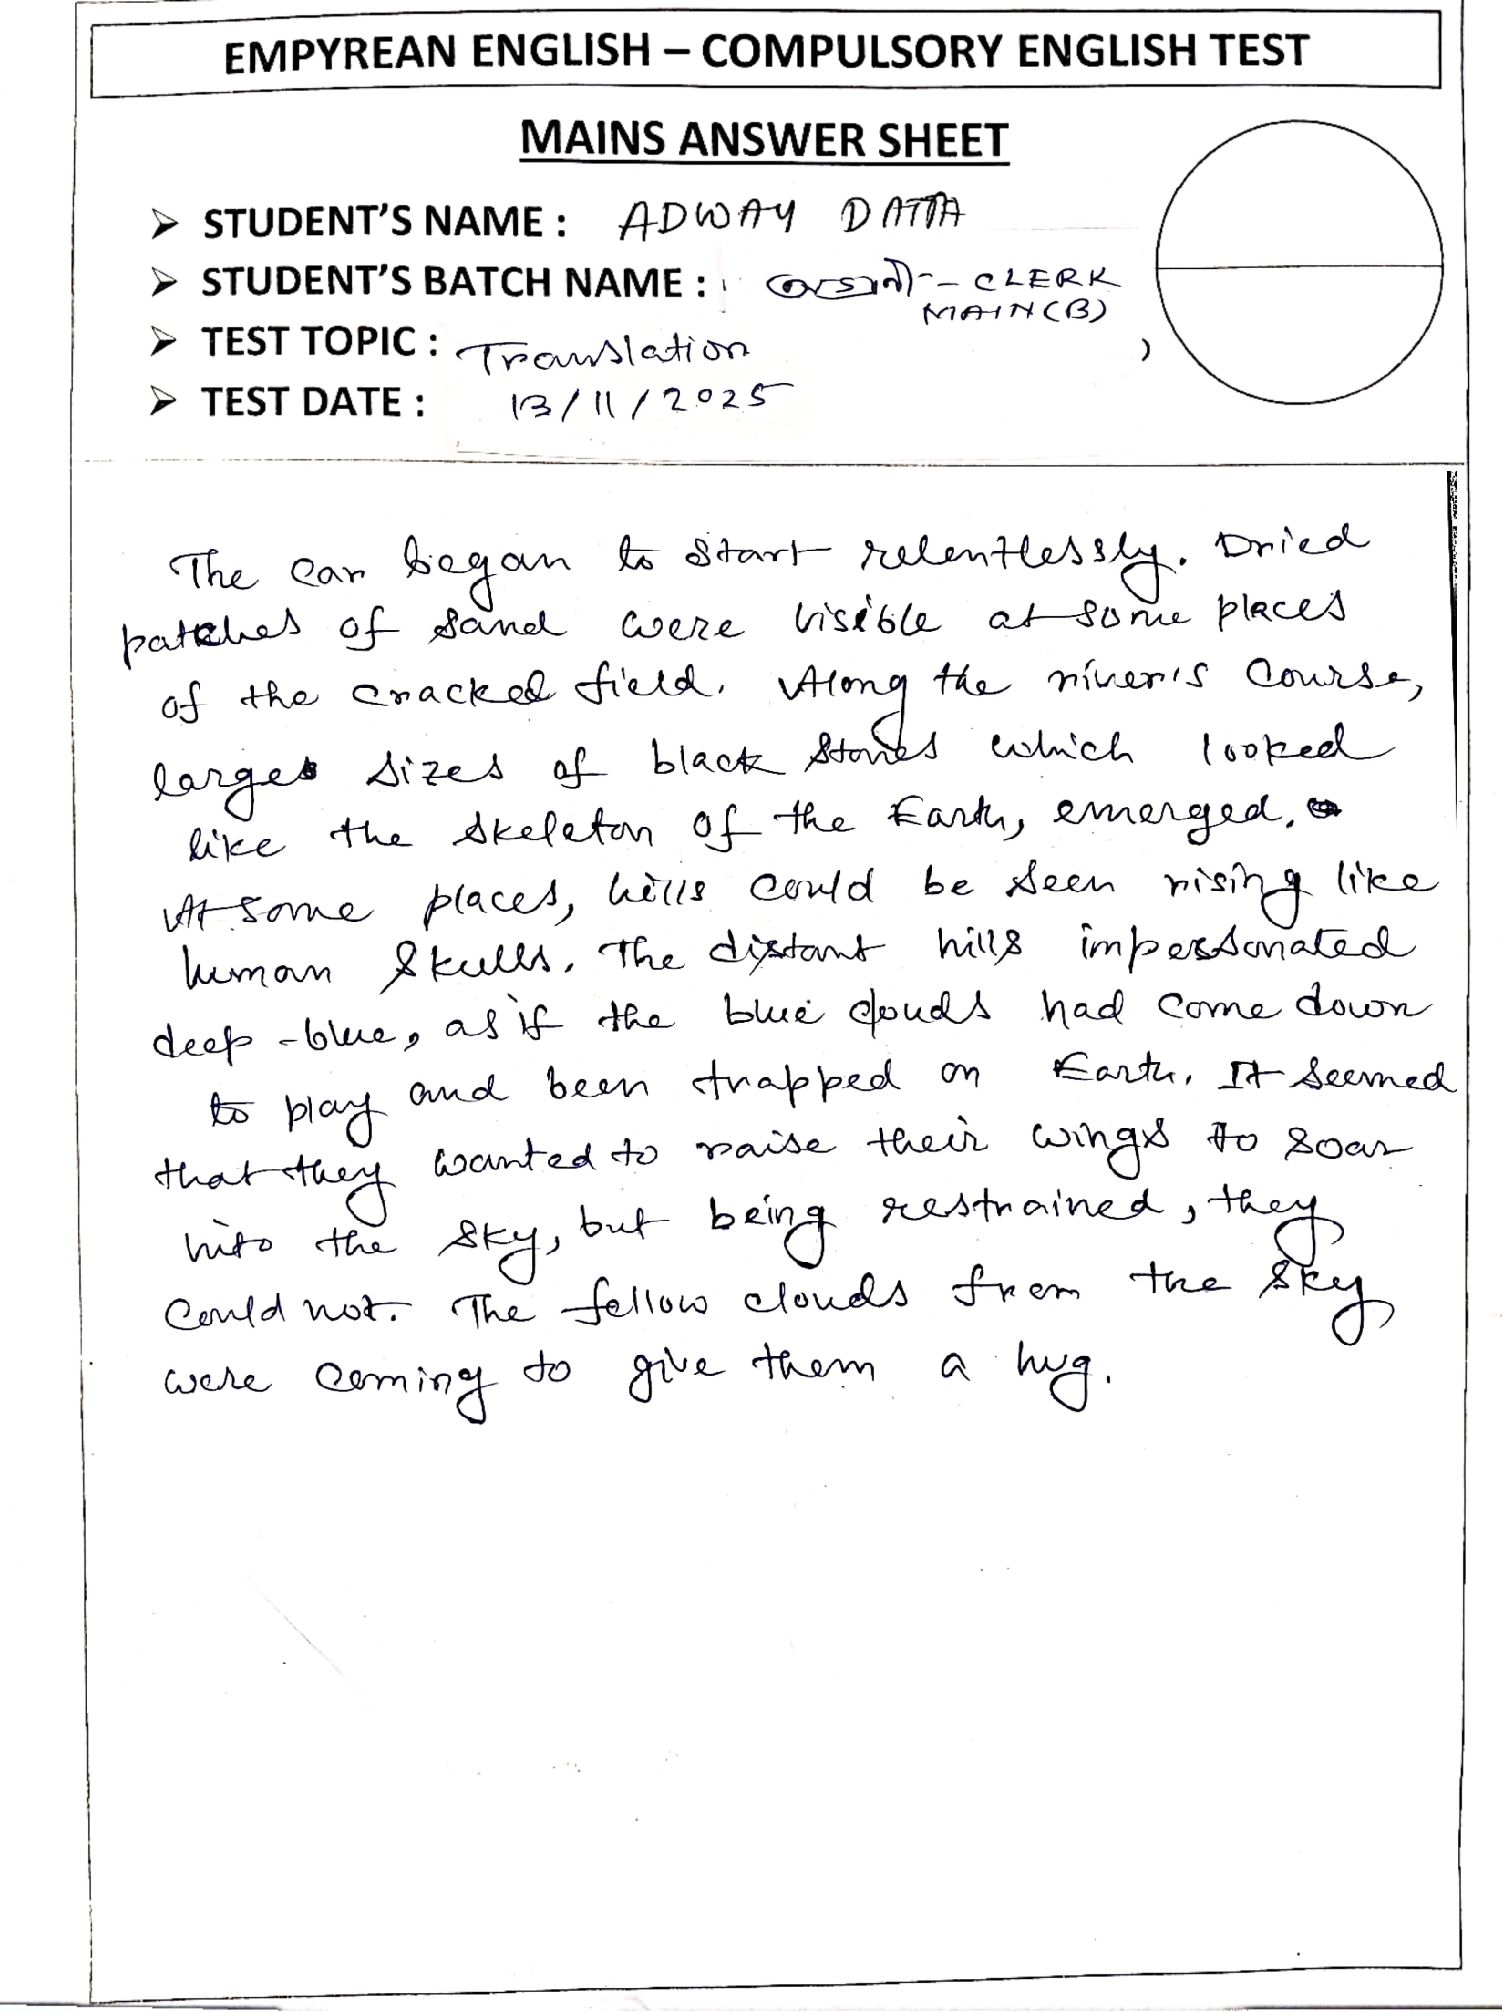 EMPYREAN ENGLISH – COMPULSORY ENGLISH TEST
MAINS ANSWER SHEET
➢ STUDENT'S NAME : ADWAY DATTA
➢ STUDENT'S BATCH NAME : - CLERK
MAIN(B)
➢ TEST TOPIC : Translation
➢ TEST DATE : 13/11/2025
The car began to start relentlessly. Dried
patches of sand were visible at some places
of the cracked field. Along the river's course,
large sizes of black stones which looked
like the skeleton of the Earth, emerged.
At some places, hills could be seen rising like
human skulls. The distant hills impersonated
deep-blue, as if the blue clouds had come down
to play and been trapped on Earth. It seemed
that they wanted to raise their wings to soar
into the sky, but being restrained, they
could not. The fellow clouds from the sky
were coming to give them a hug.